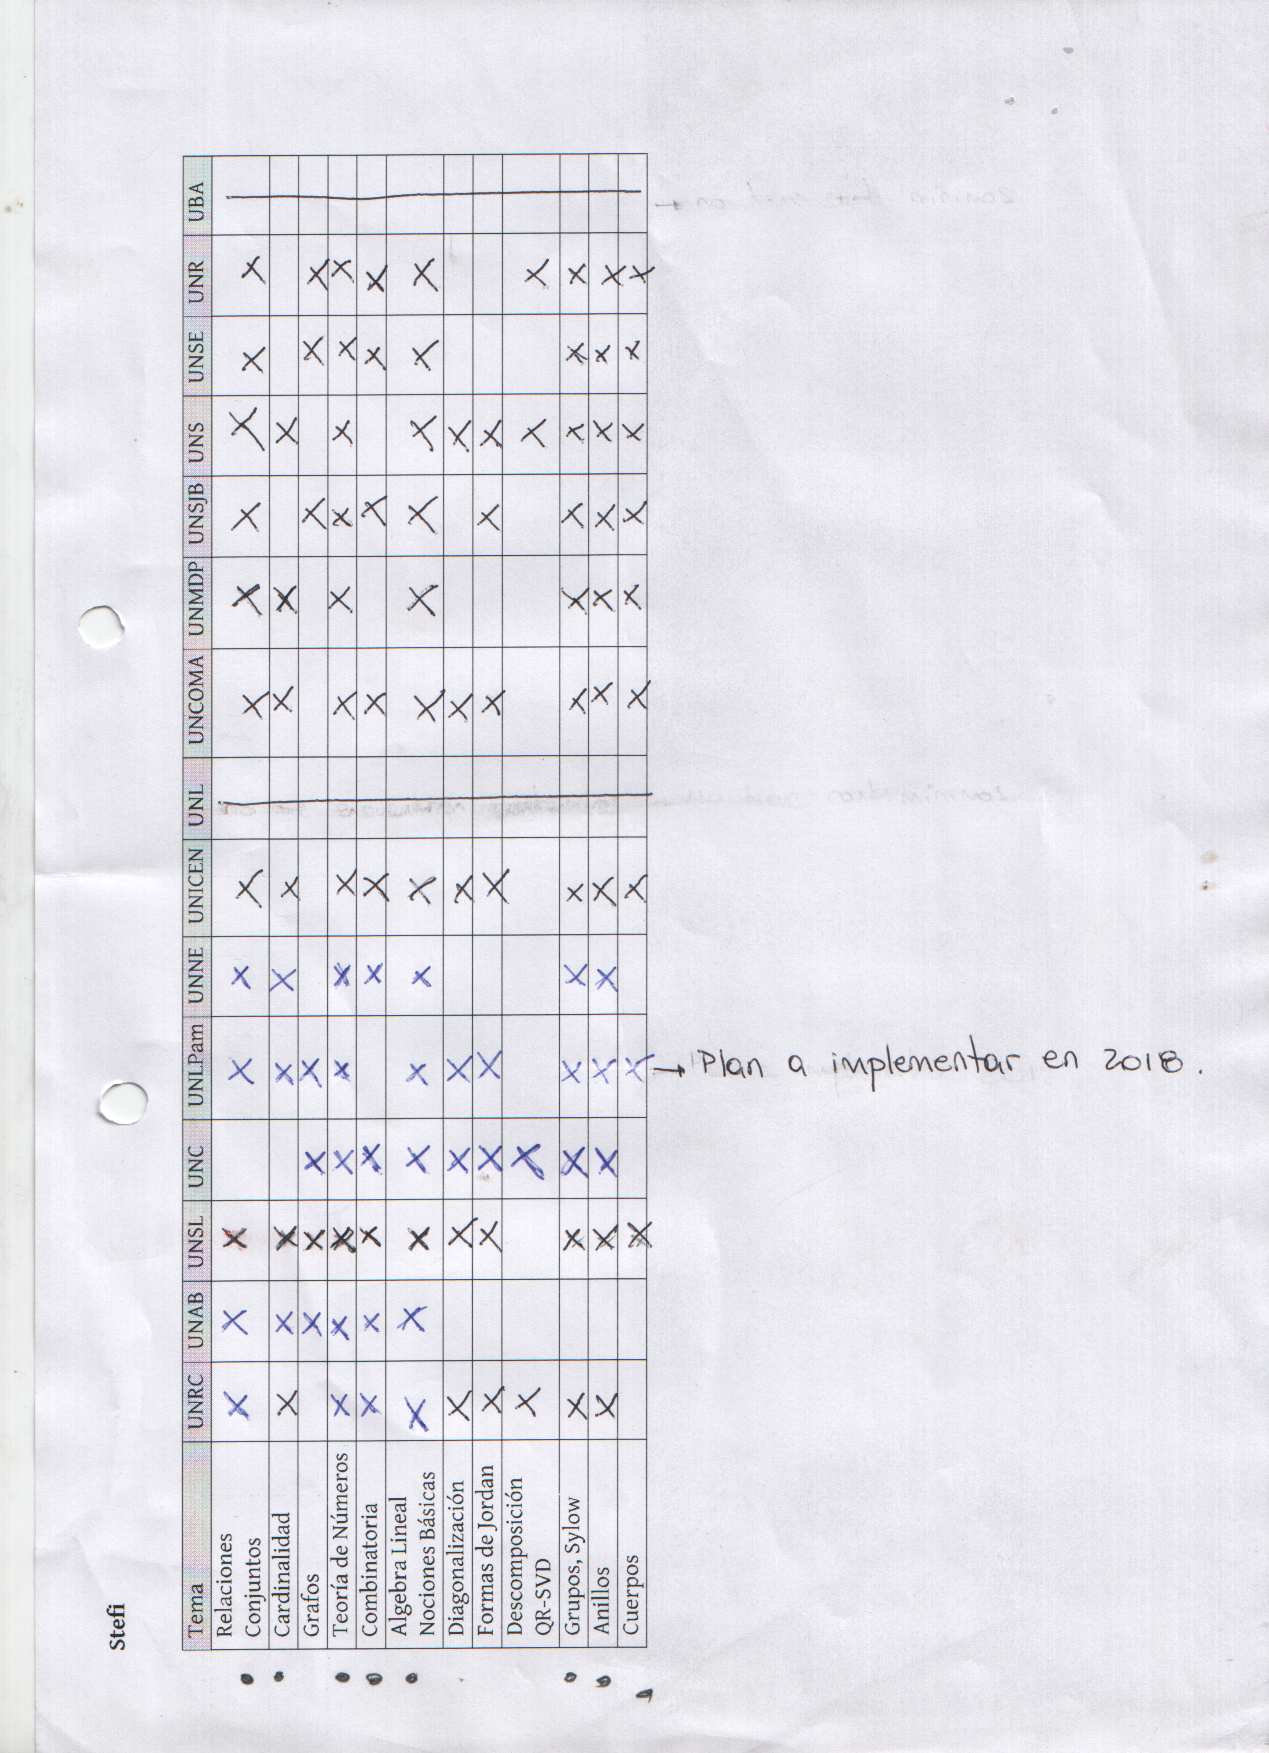 Stefi
Tema UNRC UNAB UNSL UNC UNLPam UNNE UNICEN UNL UNCOMA UNMDP UNSJB UNS UNSE UNR UBA
Relaciones
Conjuntos X X X X X X X X X X X X
Cardinalidad X X X X X X X X X
Grafos X X X X X X X
Teoría de Números X X X X X X X X X X X X X
Combinatoria X X X X X X X X X X
Algebra Lineal
Nociones Básicas X X X X X X X X X X X X X
Diagonalización X X X X X X X
Formas de Jordan X X X X X X X X
Descomposición
QR-SVD X X X X
Grupos, Sylow X X X X X X X X X X X X
Anillos X X X X X X X X X X X X
Cuerpos X X X X X X X X X
→ Plan a implementar en 2018.